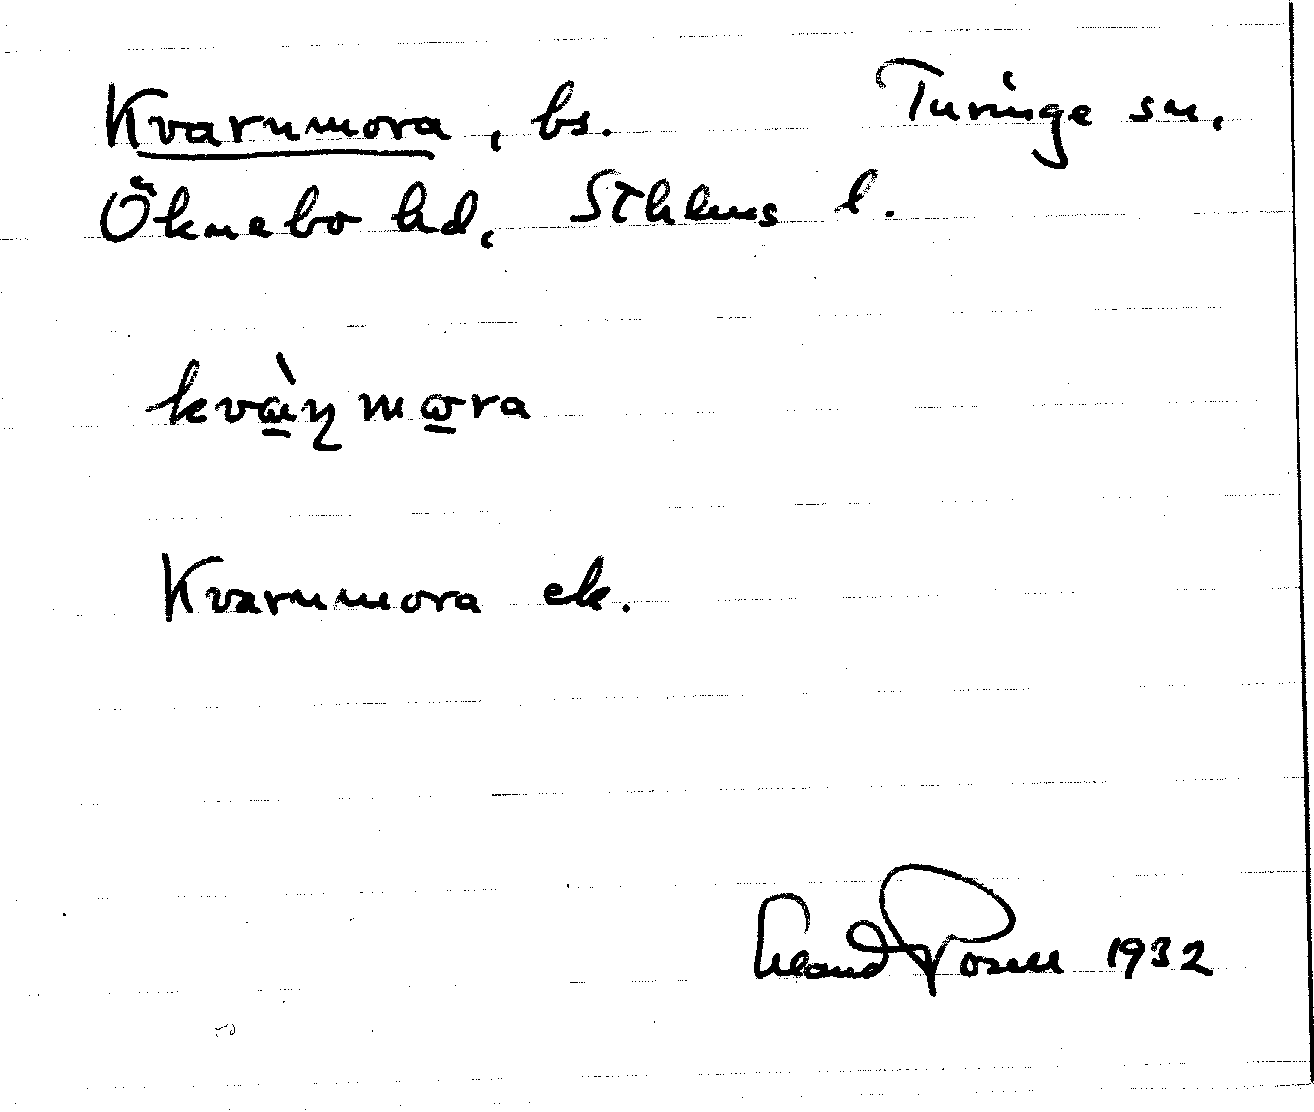 Kvarnmora, bs. Turinge sn,
Öknebo hd, Sthlms l.
kvàɳmora
Kvarnmora ek.
Erland Rosell 1932